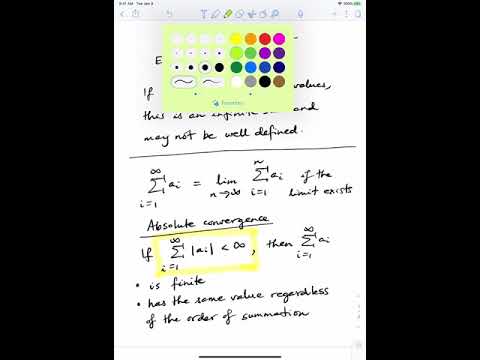 9:41 AM Tue Jan 9
100%
E
Favorites
If values,
this is an infinite and
may not be well defined.
∞ n
∑ ai = lim ∑ ai if the
i=1 n→∞ i=1 limit exists
Absolute convergence
If ∞∑i=1 |ai| < ∞, then ∞∑i=1 ai
• is finite
• has the same value regardless
of the order of summation